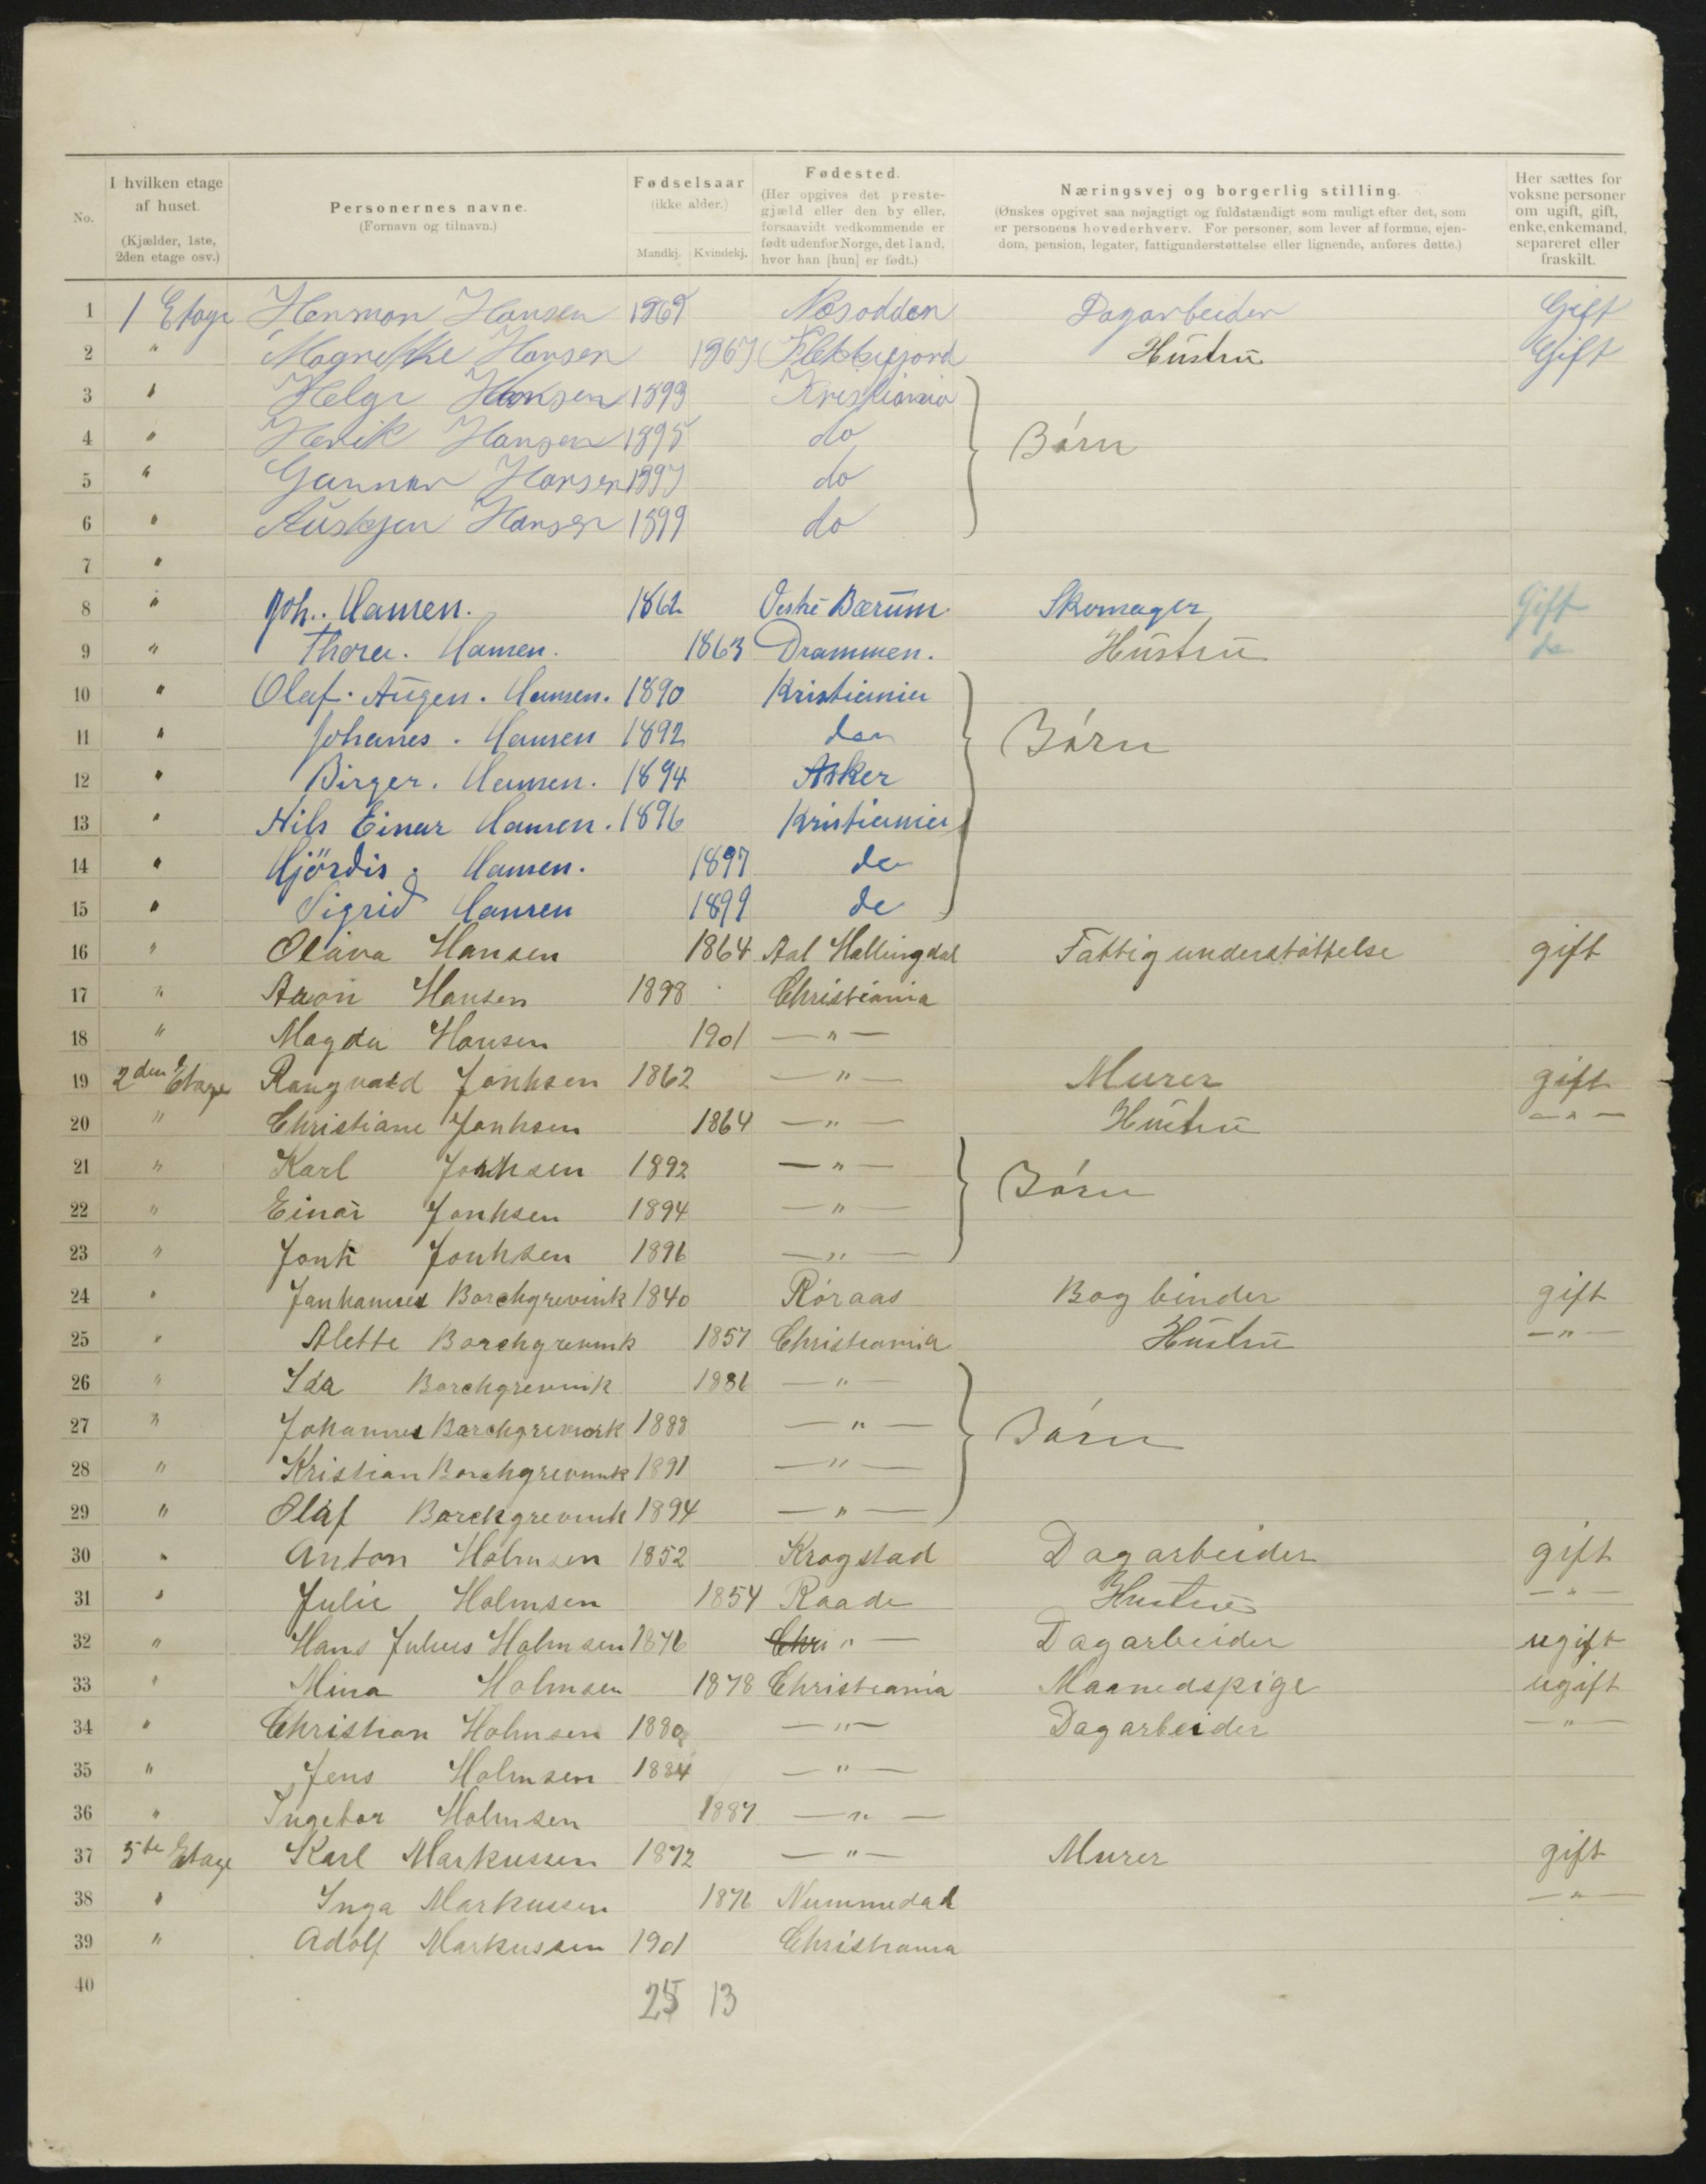 No.
I hvilken etage af huset. (Kjælder, 1ste, 2den etage osv.)
Personernes navne. (Fornavn og tilnavn.)
Fødselsaar (ikke alder.) Mandkj. Kvindekj.
Fødested. (Her opgives det prestegjæld eller den by eller, forsaavidt vedkommende er født udenfor Norge, det land, hvor han [hun] er født.)
Næringsvej og borgerlig stilling. (Ønskes opgivet saa nøjagtigt og fuldstændigt som muligt efter det, som er personens hovederhverv. For personer, som lever af formue, ejendom, pension, legater, fattigunderstøttelse eller lignende, anføres dette.)
Her sættes for voksne personer om ugift, gift, enke, enkemand, separeret eller fraskilt.
1 1 Etage Herman Hansen Næsodden Dagarbeider Gift
2 " Magrethe Hansen 1867 Flekkefjord Hustru Gift
3 " Helge Hansen 1893 Kristiania
4 " Henrik Hansen 1895 do Børn
5 " Gunnar Hansen 1897 do
6 " Hansen 1899 do
7 "
8 " Joh. Hansen. 1862 Vestre Bærum Skomager Gift
9 " Thora. Hansen. 1863 Drammen. Hustru do
10 " Olaf. Augen. Hansen. 1890 Kristiania
11 " Johanes. Hansen 1892 do Børn
12 " Birger. Hansen. 1894 Asker
13 " Nils Einar Hansen. 1896 Kristiania
14 " Hjördis. Hansen. 1897 do
15 " Sigrid Hansen 1899 do
16 " Olava Hansen 1864 Aal Hallingdal Fattigunderstøttelse gift
17 " Aron Hansen 1898 Christiania
18 " Magda Hansen 1901 — " —
19 2den Etage Rangvald Jonhsen 1862 — " — Murer gift
20 " Christiane Jonhsen 1864 — " — Hustru — " —
21 " Karl Jonhsen 1892 — " — Børn
22 " Einar Jonhsen 1894 — " —
23 " Jonh Jonhsen 1896 — " —
24 " Janhannes Borchgrevink 1840 Røraas Bogbinder gift
25 " Alette Borchgrevink 1857 Christiania Hustru — " —
26 " Ida Borchgrevink 1886 — " —
27 " Johannes Borchgrevink 1888 — " — Børn
28 " Kristian Borchgrevink 1891 — " —
29 " Olaf Borchgrevink 1894 — " —
30 " Anton Holmsen 1852 Krogstad Dagarbeider gift
31 " Julie Holmsen 1854 Raade Hustru — " —
32 " Hans Julius Holmsen 1876 Chri " — Dagarbeider ugift
33 " Mina Holmsen 1878 Christiania Maanedspige ugift
34 " Christian Holmsen 1880 — " — Dagarbeider — " —
35 " Jens Holmsen 1884 — " —
36 " Ingebor Holmsen 1887 — " —
37 3de Etage Karl Markussen 1872 — " — Murer gift
38 " Inga Markussen 1876 Nummedal — " —
39 " Adolf Markussen 1901 Christiania
40
25 13